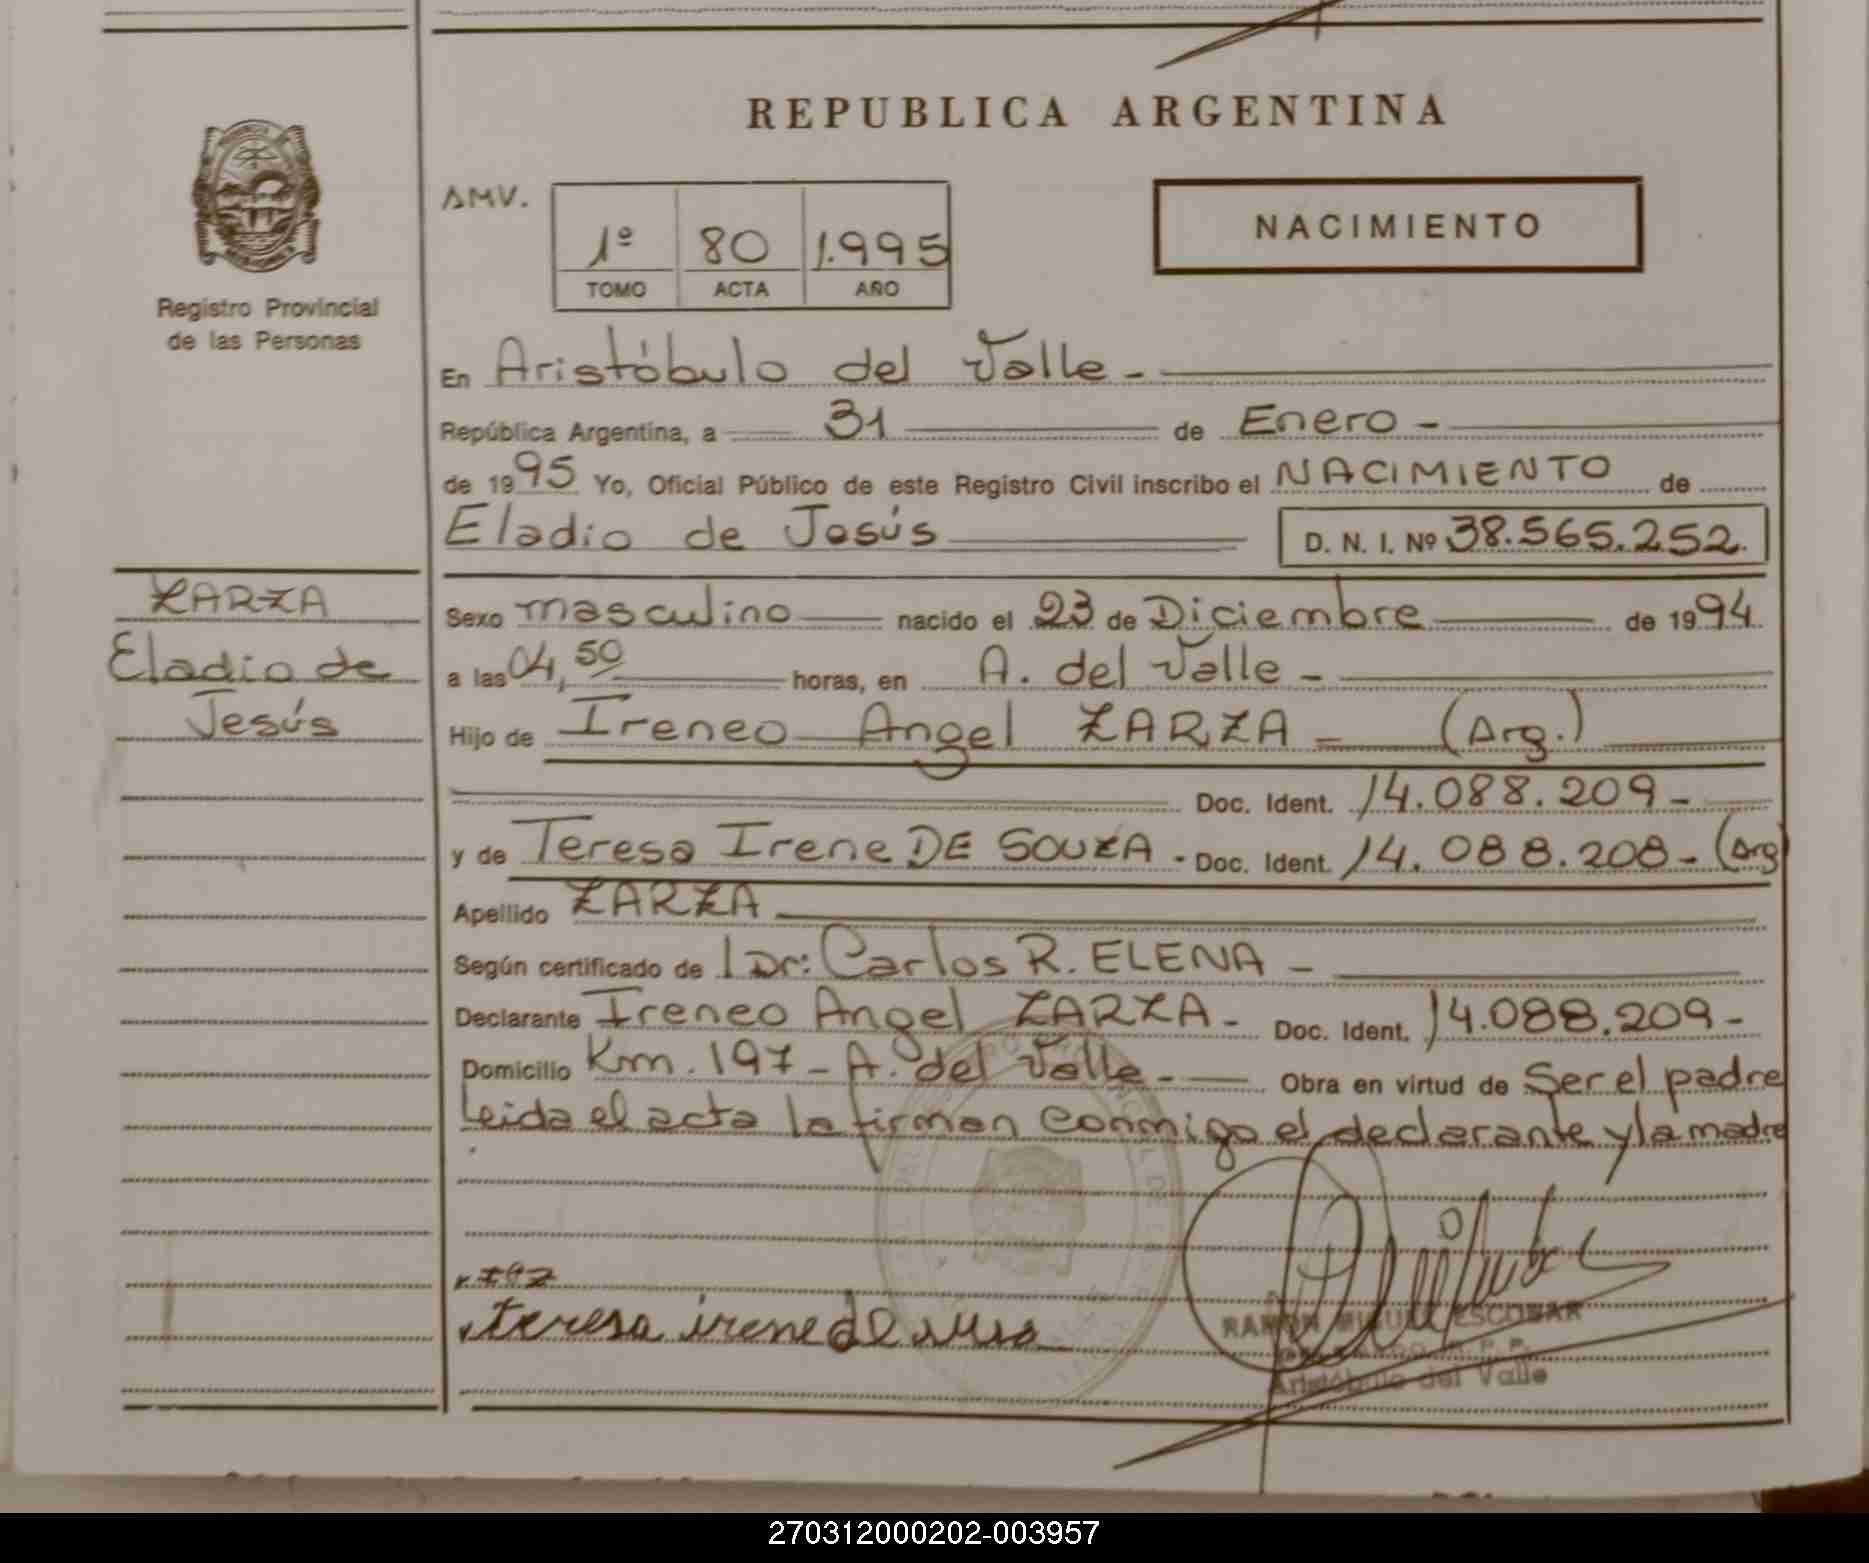 REPUBLICA ARGENTINA
AMV.
1º 80 1.995
TOMO ACTA AÑO
NACIMIENTO
Registro Provincial
de las Personas
En Aristóbulo del Valle -
República Argentina, a 31 de Enero -
de 1995 Yo, Oficial Público de este Registro Civil inscribo el NACIMIENTO de
Eladio de Jesús D. N. I. Nº 38.565.252.
ZARZA
Eladio de
Jesús
Sexo masculino nacido el 23 de Diciembre de 1994
a las 04,50 horas, en A. del Valle -
Hijo de Ireneo Angel ZARZA - (Arg.)
Doc. Ident. 14.088.209 -
y de Teresa Irene DE SOUZA - Doc. Ident. 14.088.208 - (Arg)
Apellido ZARZA
Según certificado de Dr: Carlos R. ELENA -
Declarante Ireneo Angel ZARZA - Doc. Ident. 14.088.209 -
Domicilio Km. 197 - A. del Valle - Obra en virtud de Ser el padre
Leida el acta la firman conmigo el declarante y la madre
teresa irene de
RAMON MIGUEL ESCOBAR
Aristóbulo del Valle
270312000202-003957